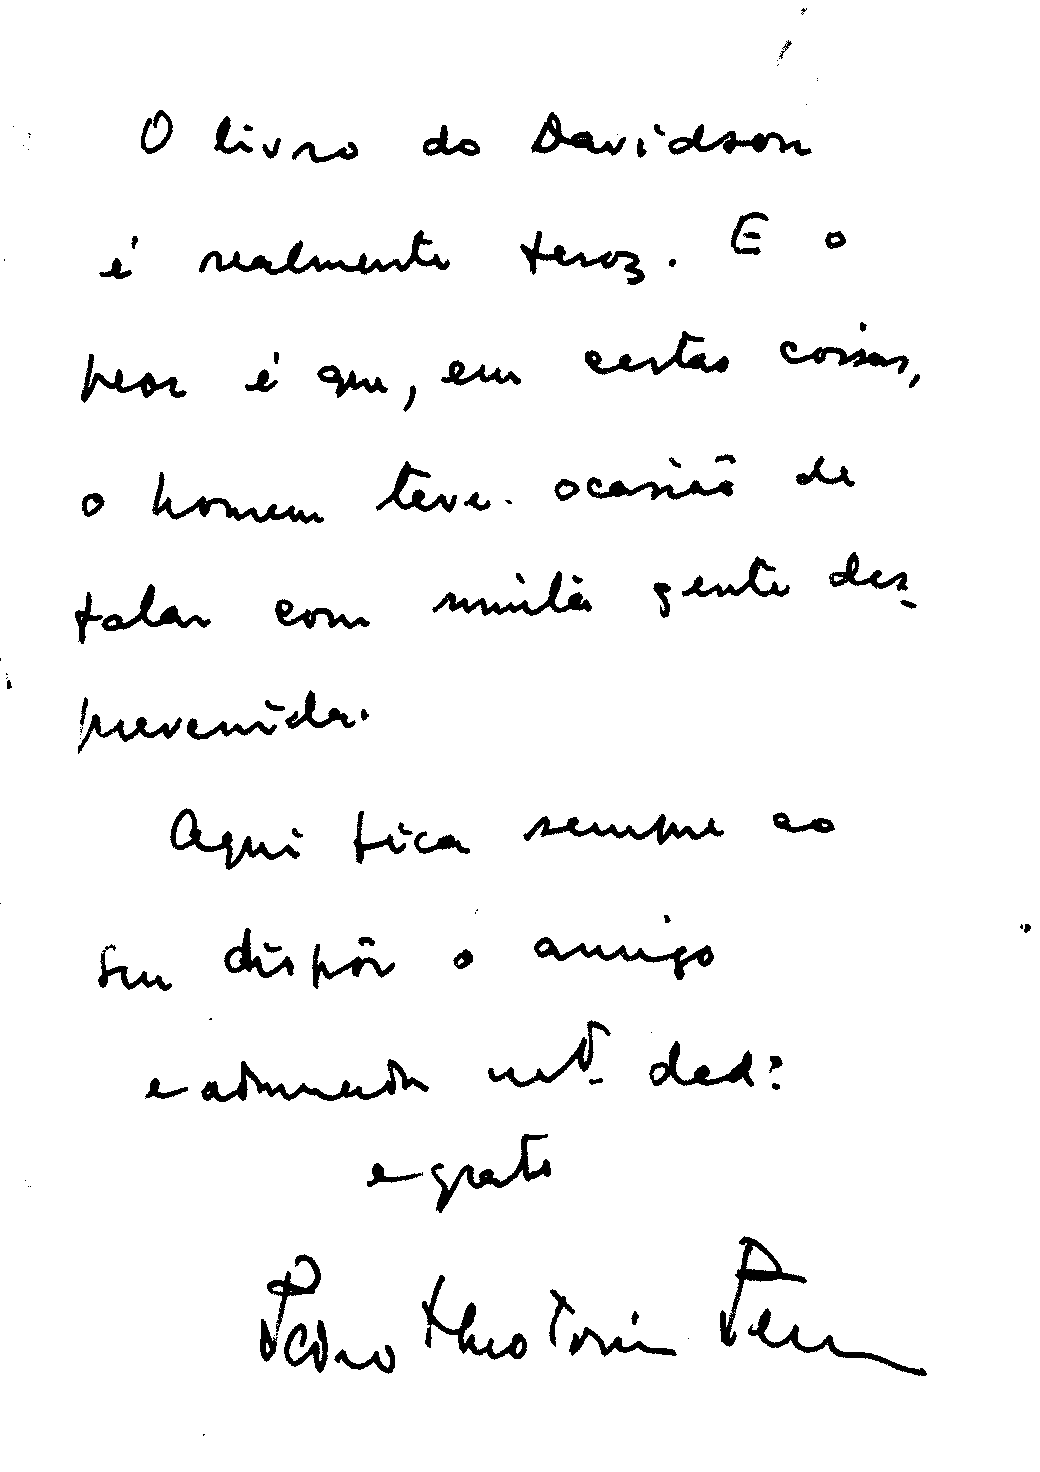 O livro do Davidson
é realmente feroz. E o
peor é que, em certas coisas,
o homem teve ocasião de
falar com muita gente des-
prevenida.
Aqui fica sempre ao
seu dispôr o amigo
e admirador mtº. ded:
e grato
Pedro Theotonio Pereira